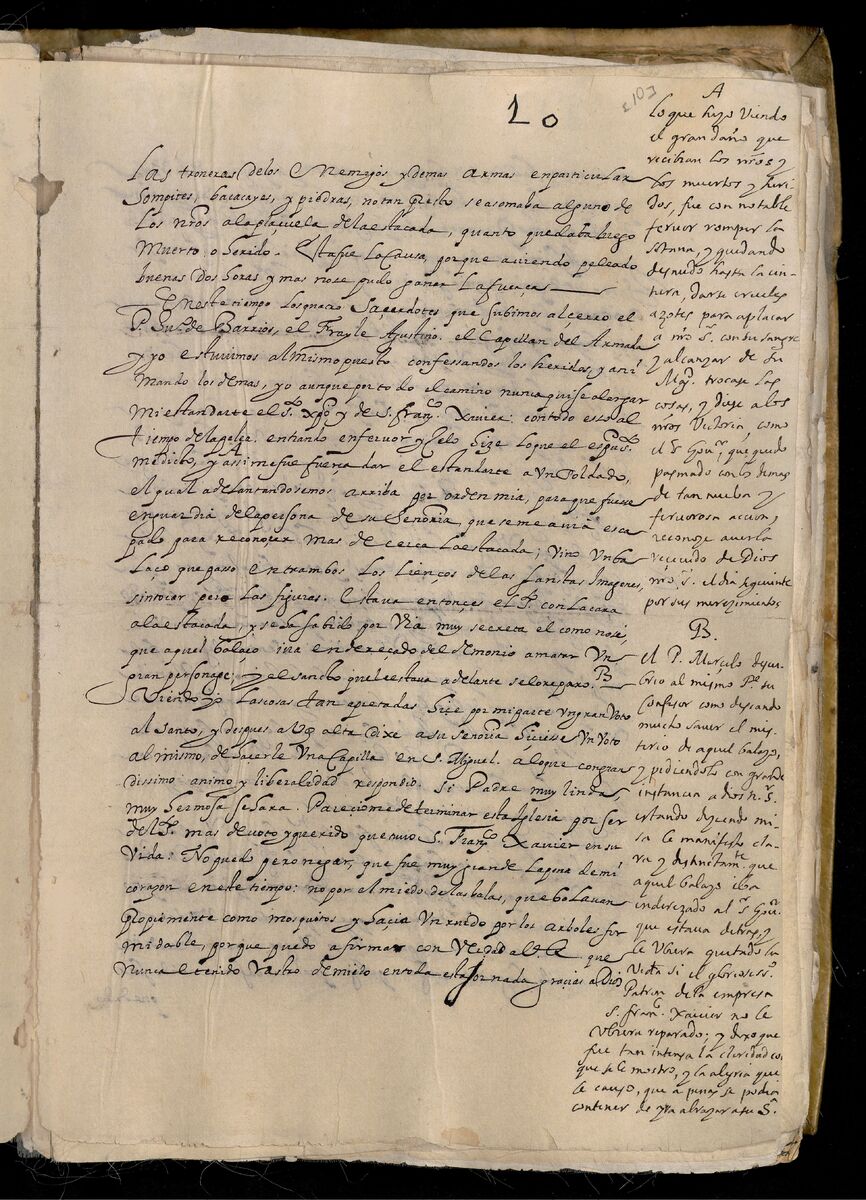 10
las troneras de los Enemigos y demas armas en particular
Sompites, bacacayes, y piedras, no tan presto se asomaba alguno de
los nr̃os a la plaçuela de la estacada, quanto quedaba luego
Muerto, o herido. Esta fue la causa, porque aviendo peleado
buenas dos horas y mas no se pudo ganar la fuerça
En este tiempo los quatro Saçerdotes que subimos al çerro el
P. Ju.º de Barrios, el Frayle Agustino, el Capellan del Armada
y yo estuvimos al mismo puesto confessando los heridos, y ani
mando los demas, yo aunque por todo el camino nunca quise alargar
Mi estandarte el S.r xp̃o y de S. Fran.co Xavier: con todo esto al
tiempo de la pelea entrando en fervor y Zelo hize lo que el espu.
me dicto, y assi me fue fuerça dar el estandarte a un Soldado,
el qual adelantandosemos arriba por orden mia, para que fuesse
en guardia de la persona de su Señoria, que se me avia esca
pado para reconoçer mas de cerca la estacada; vino un ba
laço que passo entrambos los lienços de las santas Imagenes,
sin tocar pero las figuras. Estava entonçes el S.to con la cara
a la estacada, y se ha sabido por via muy secreta el como no sé,
que aquel balaço iva endereçado del Demonio a matar un
gran personage; y el sancto que le estava adelante se lo reparo. B
Viendo yo las cosas tan apretadas hize por mi parte un gran Voto
al Santo, y despues a voz alta dixe a su señoria hiçiesse un Voto
al mismo, de hazerle una Capilla en S. Miguel. a lo que con gran
dissimo animo y liberalidad respondio. Si Padre muy linda, y
muy hermosa se hara. Pareciome determinar esta Iglesia por ser
del S.to mas devoto y querido que tuvo S. Fran.co Xavier en su
Vida: No puedo pero negar, que fue muy grande la pena de mi
corazon en este tiempo: no por el miedo de las balas, que bolavan
propiamente como mosquitos y haçia un ruido por los arboles for
midable, porque puedo afirmar con verdad a V.R. que
nunca e tenido rastro de miedo en toda esta jornada, graçias a Dios
A
lo que hizo Viendo
el gran daño que
recibian los nr̃os y
los muertos y heri-
dos, fue con notable
fervor romper la
sotana, y quedando
desnudo hasta la cin-
tura, darse crueles
azotes para aplacar
a nr̃o S.r con su sangre
y alcanzar de su
Mag.d trocase las
cosas, y diese a los
nr̃os Victoria, como
el S.r Gou.r, que quedo
pasmado con los demas
de tan nueba y
fervorosa accion,
reconoze averla
recevido de Dios
nr̃o S.r el dia siguiente
por sus merezimientos
B.
el P. Marçelo descu-
brio al mismo P.e su
Confesor como deseando
mucho saver el mis-
terio de aquel balazo,
y pidiendolo con grande
instancia a dios n.S.
estando diziendo mi-
sa le manifesto cla-
ra y distintam.te que
aquel balazo iba
enderezado al S.r Gou.r
que estava detras, y
le Ubiera quitado la
Vida si el gloriosiss.o
Patron de la empresa
S. Fran.co Xavier no le
Ubiera reparado; y dixo que
fue tan intensa la claridad con
que se le mostro, y la alegria que
le causo, que a penas se podia
contener de yr a abrazar a su S.a